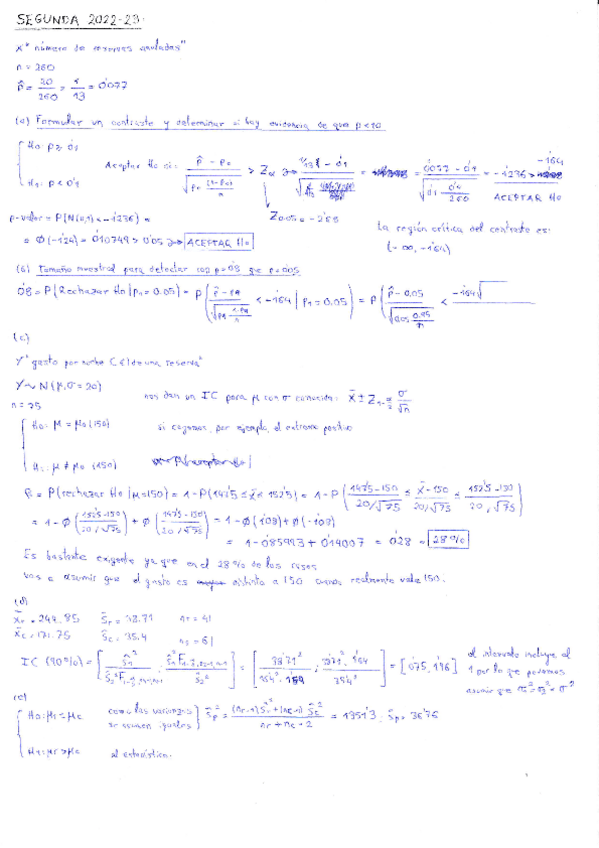 SEGUNDA 2022-23.
X "número de reservas anuladas"
n = 260
p̂ = 20/260 = 1/13 = 0'077
(a) Formular un contraste y determinar si hay evidencia de que p<10
H0: p ≥ 0'1
H1: p < 0'1
Aceptar H0 si: (p̂ - p0)/√(p0 (1-p0)/n) > Zα → (1/13 - 0'1)/√ = (0'077 - 0'1)/√(0'1 0'9/260) = -1'236 > -1'64
ACEPTAR H0
p-valor = P(N(0,1) < -1'236) =
= Φ(-1'24) = 0'10749 > 0'05 → ACEPTAR H0
Z0.05 = -2'58
La región crítica del contraste es:
(-∞, -1'64)
(b) Tamaño muestral para detectar con p=0'8 que p=0'05
0'8 = P(Rechazar H0 | p1 = 0.05) = P( < -1'64 | p1 = 0.05) = P((p̂ - 0.05)/√(0.05 0.95/n) < -1'64√
(c)
Y "gasto por noche (€) de una reserva"
Y ~ N(μ, σ = 20)
n = 75
nos dan un IC para μ con σ conocida: x̄ ± Z σ/√n
H0: μ = μ0 (150)
si cogemos, por ejemplo, el extremo positivo
H1: μ ≠ μ0 (150)
R = P(rechazar H0 | μ=150) = 1 - P(147'5 ≤ x̄ ≤ 152'5) = 1 - P((147'5-150)/(20/√75) ≤ (x̄-150)/(20/√75) ≤ (152'5-150)/(20/√75))
= 1 - Φ((152'5-150)/(20/√75)) + Φ((147'5-150)/(20/√75)) = 1 - Φ(1'08) + Φ(-1'08)
= 1 - 0'85993 + 0'14007 = 0'28 = 28%
Es bastante exigente ya que en el 28% de los casos
vas a asumir que el gasto es distinto a 150 cuando realmente vale 150.
(d)
x̄r = 242.85
Ŝr = 38.71
nr = 41
x̄c = 171.75
Ŝc = 35.4
nc = 61
IC (90%) = = [38'71²/ ; 38'71² 1'54/35'4²] = [0'75, 1'96]
el intervalo incluye el
1 por lo que podemos
asumir que σ² = σ² = σ²
(e)
H0: μr ≤ μc
H1: μr > μc
como las varianzas
se asumen iguales
Ŝp² = ((nr-1)Ŝr² + (nc-1)Ŝc²)/(nr + nc - 2) = 1351'3; Ŝp = 36'76
el estadístico.